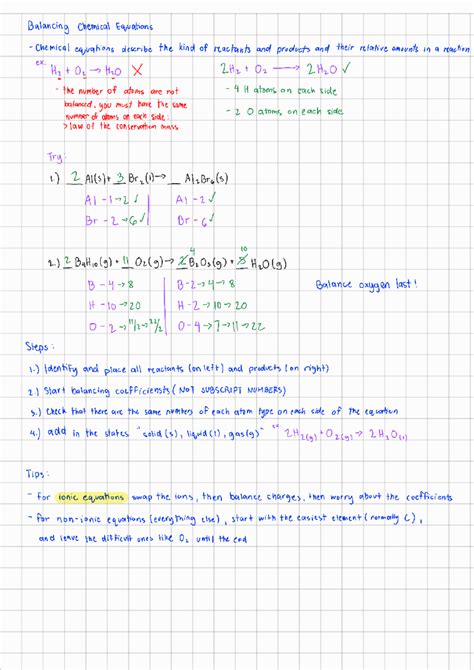 Balancing Chemical Equations
- Chemical equations describe the kind of reactants and products and their relative amounts in a reaction
ex: H₂ + O₂ → H₂O X 2H₂ + O₂ → 2H₂O ✓
- the number of atoms are not balanced, you must have the same number of atoms on each side:
> law of the conservation mass
- 4 H atoms on each side
- 2 O atoms on each side
Try:
1.) 2 Al(s) + 3 Br₂(l) → __ Al₂Br₆(s)
Al - 1 → 2 ✓ Al - 2 ✓
Br - 2 → 6 ✓ Br - 6 ✓
2.) 2 B₄H₁₀(g) + 11 O₂(g) → 4 B₂O₃(g) + 10 H₂O(g)
B - 4 → 8 B - 2 → 4 → 8
H - 10 → 20 H - 2 → 10 → 20
O - 2 → 11/2 → 22/2 O - 4 → 7 → 11 → 22
Balance oxygen last!
Steps:
1.) Identify and place all reactants (on left) and products (on right)
2.) Start balancing coefficiensts (NOT SUBSCRIPT NUMBERS)
3.) Check that there are the same numbers of each atom type on each side of the equation
4.) add in the states "solid (s), liquid (l), gas (g)" ex 2H₂(g) + O₂(g) → 2H₂O(l)
Tips:
- For ionic equations swap the ions, then balance charges, then worry about the coefficients
- for non-ionic equations (everything else), start with the easiest element (normally C),
and leave the difficult ones like O₂ until the end